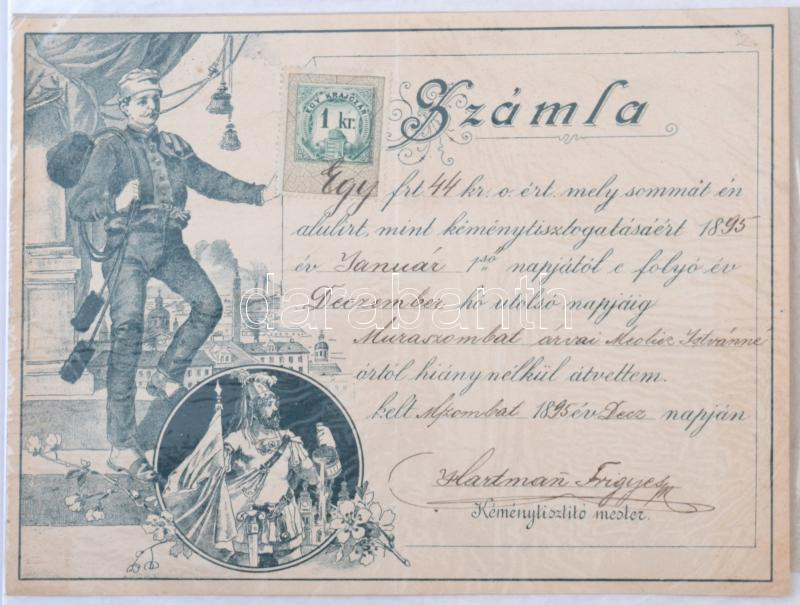 Számla
EGY KRAJCZÁR
1 kr.
Egy frt 44 kr. o. ért. mely sommát én
alulirt, mint kéménytisztogatásáért 1895
év Január 1ső napjától e folyó év
Deczember hó utolsó napjáig
darabanth
Muraszombat árvai Meolicz Istvánné
úrtól hiány nélkül átvettem.
kelt Mszombat 1895 év Decz napján
Hartmañ Frigyes
Kéménytisztitó mester.